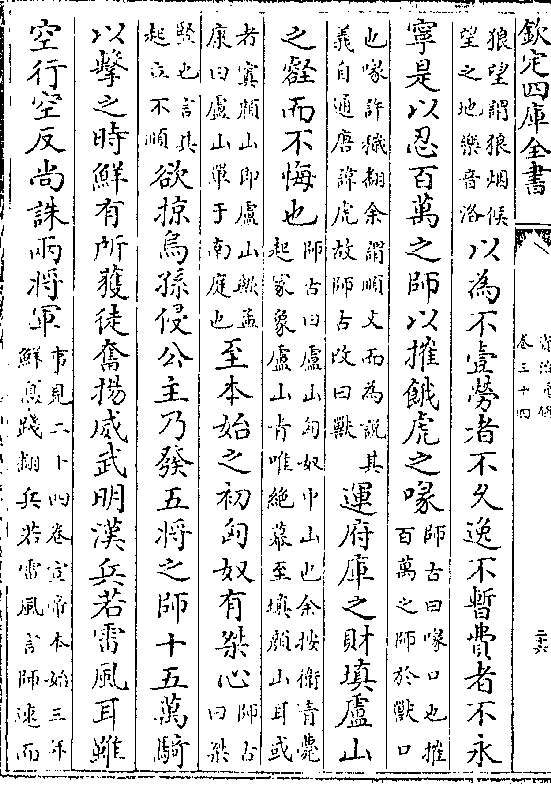 欽定四庫全書
資治通鑑
卷三十四
二十六
狼望謂狼烟候
望之地樂音洛
以為不壹勞者不久逸不暫費者不永
寧是以忍百萬之師以摧餓虎之喙
師古曰喙口也摧
百萬之師於獸口
也喙許穢翻余謂順文而為說其
義自通唐諱虎故師古改曰獸
運府庫之財填盧山
之壑而不悔也
師古曰盧山匈奴中山也余按衛青薨
起冢象盧山青唯絶幕至塡顔山耳或
者寘顔山即盧山歟孟
康曰盧山單于南庭也
至本始之初匈奴有桀心
師古
曰桀
堅也言其
起立不順
欲掠烏孫侵公主乃發五將之師十五萬騎
以擊之時鮮有所獲徒奮揚威武明漢兵若雷風耳雖
空行空反尚誅兩將軍
事見二十四卷宣帝本始三年
鮮息踐翻兵若雷風言師速而